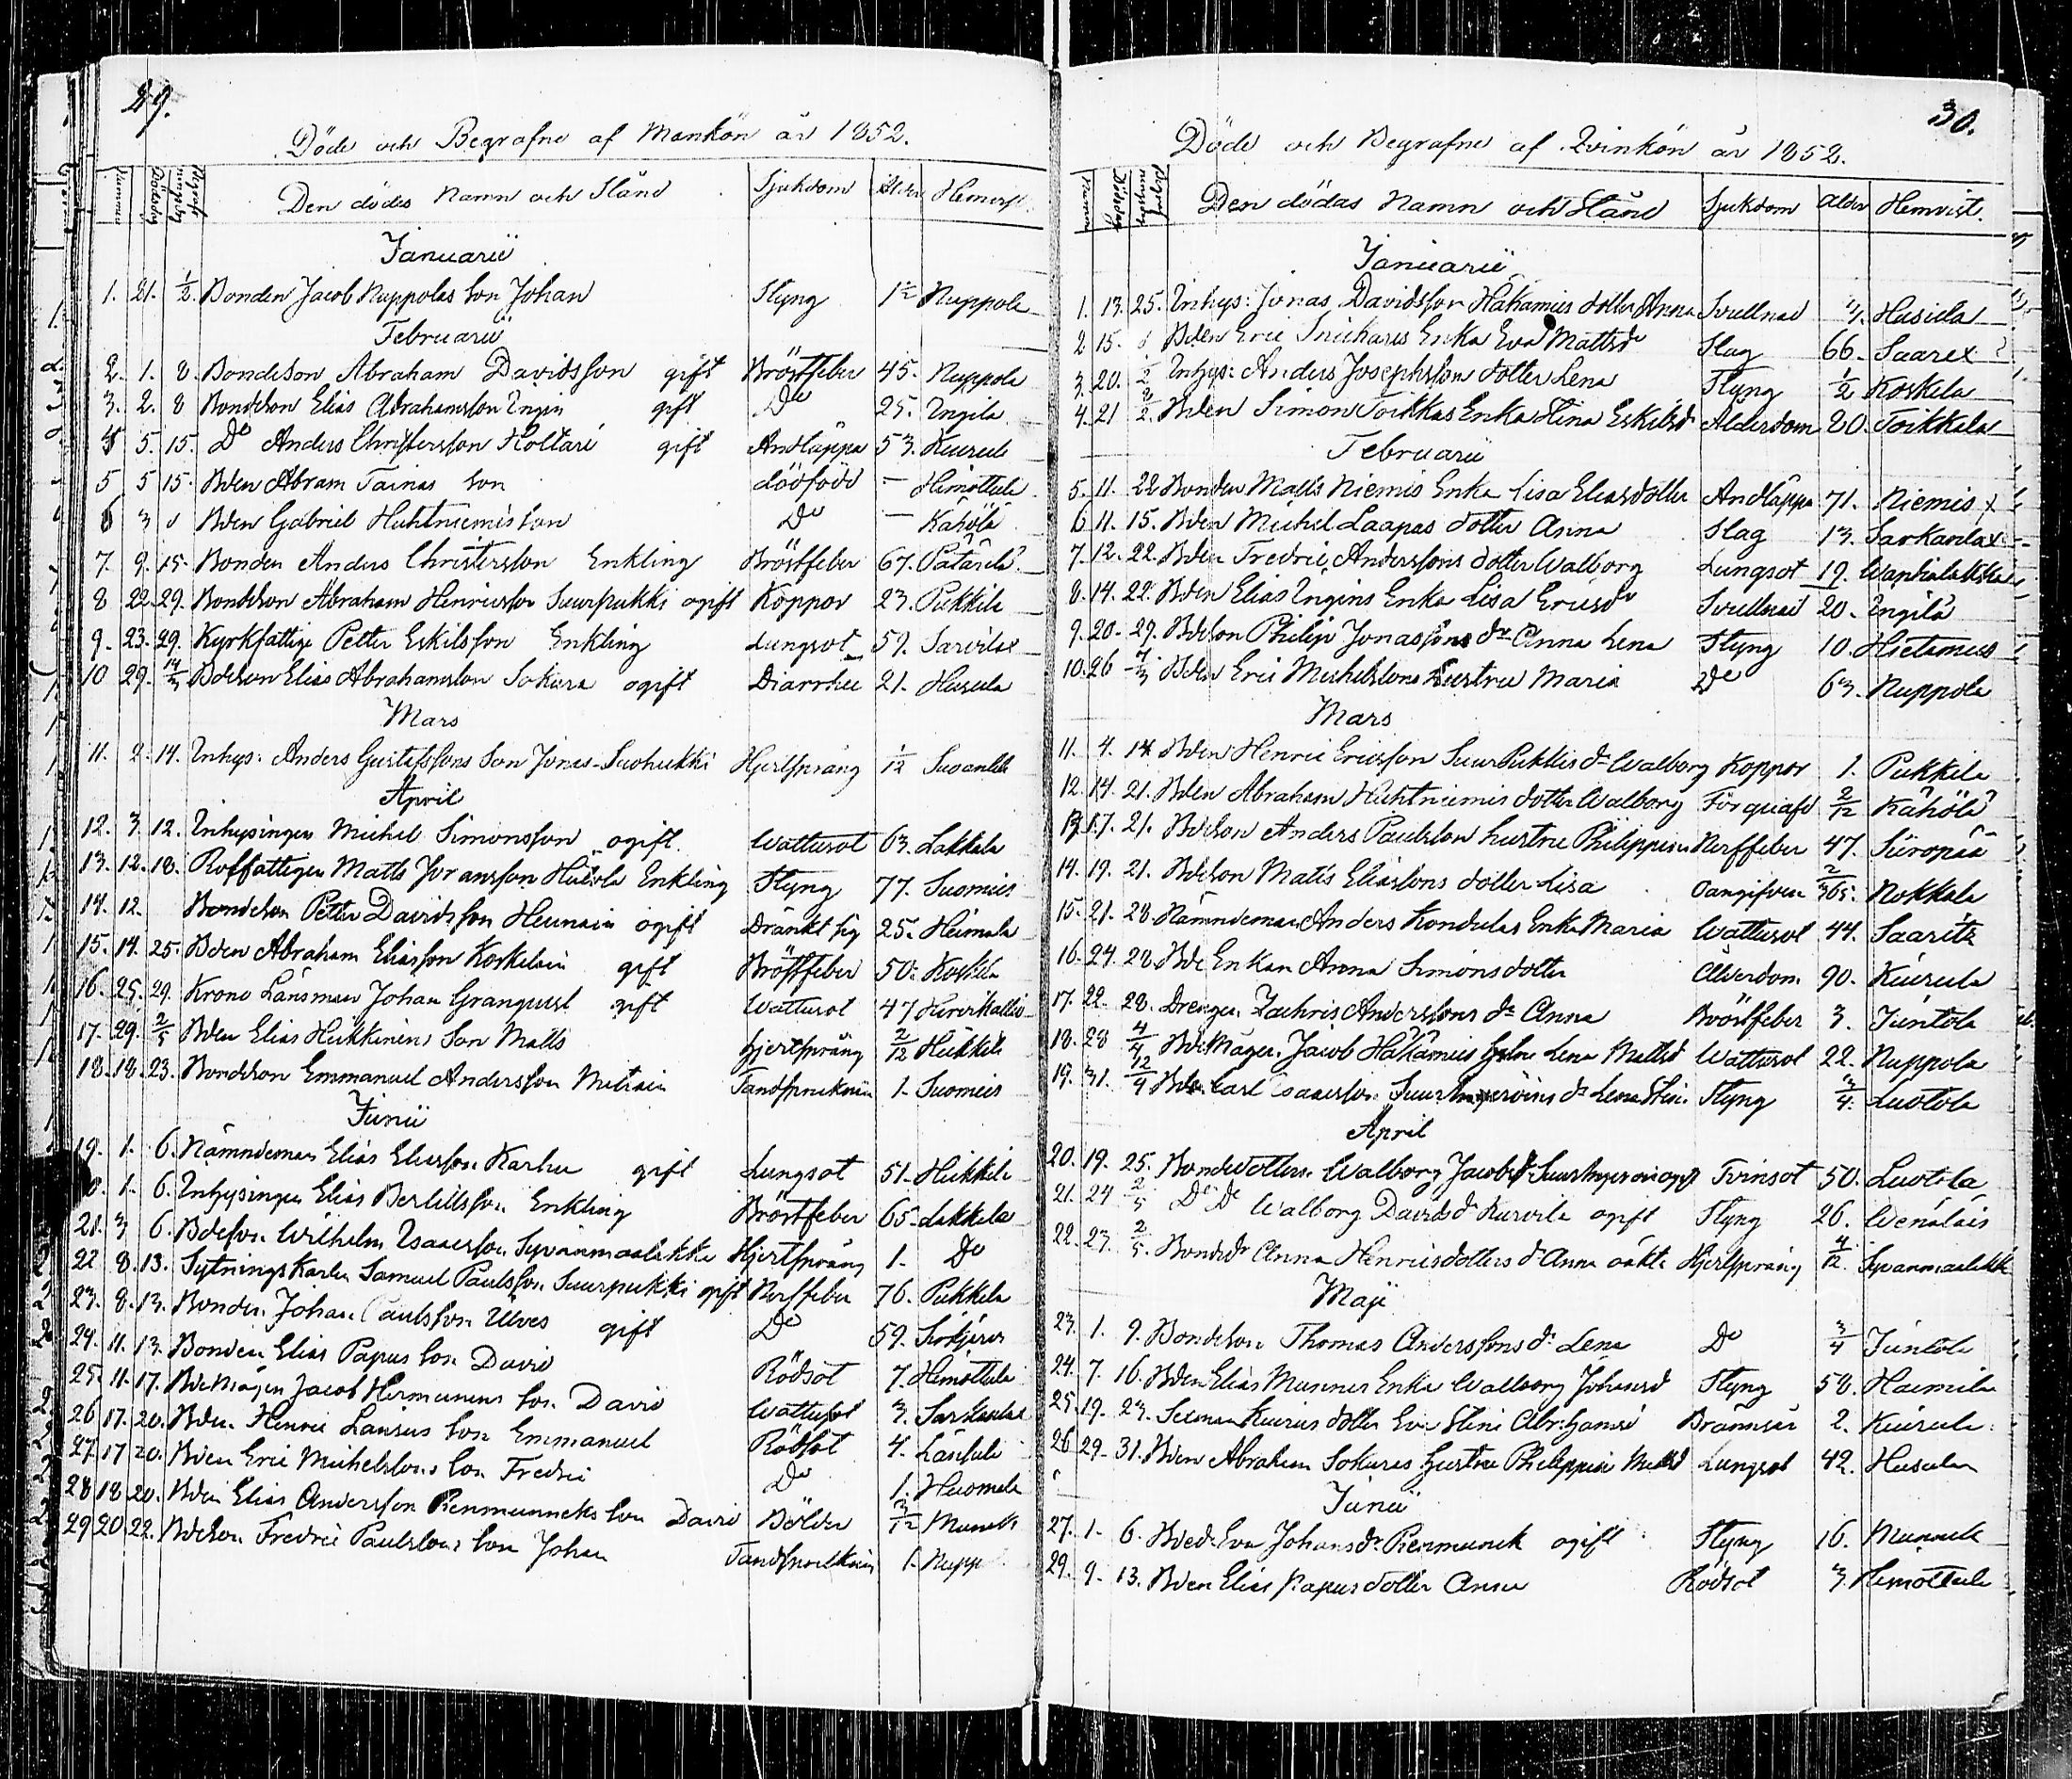 29.
Döde och Begrafne af Mankön år 1852.
Nummer Dödsdag Begrafningsdag Den dödes Namn och Stånd Sjukdom Ålder Hemvist.
Januarii
1. 21. 1/2. Bonden Jacob Nuppolas Son Johan Styng 1 1/2 Nuppola
Februarii
2. 1. 8. Bondeson Abraham Davidsson gift Bröstfeber 45. Nuppola
3. 2. 8 Bondeson Elias Abrahamsson Ingin gift Do 25. Ingila
4 5. 15. Do Anders Christersson Holtari gift Andtäppa 53. Kiurula
5 5 15. Bden Abram Tainas Son dödfödd — Himottula
6 3 8 Bden Gabriel Huhtniemis Son Do — Kähölä
7 9. 15. Bonden Anders Christersson Enkling Bröstfeber 67. Patarila
8 22. 29. Bondeson Abraham Henricsson Suurpukki ogift Koppor 23. Pukkila
9. 23. 29. Kyrkfattige Petter Eskilsson Enkling Lungsot 59. Sarvilax
10 29. 14/3 Bdeson Elias Abrahamsson Sokura ogift Diarrhee 21. Husula
Mars
11. 2. 14. Inhys: Anders Gustafssons Son Jonas Suohukki Hjertsprång 1/12
April
12. 3. 12. Inhysingen Michel Simonsson ogift. Wattusot 63. Lakkala
13. 12. 18. Rotfattigen Matts Joransson Enkling Styng 77. Suomies
14. 12. Bondeson Petter Davidsson ogift Dränkt sig 25. Heimala
15. 14. 25. Bden Abraham Eliasson Koskelain gift Bröstfeber 50. Koskela
16. 25. 29. Krono Länsman Johan Granqvist gift Wattusot 47 Hirvikallio
17. 29. 2/5 Bden Elias Heikkinens Son Matts Hjertsprång 2/12 Heikkilä
18. 18. 23. Bondeson Emmanuel Andersson 1. Suomies
Junii
19. 1. 6. Nämndeman Elias Eliasson Karhu gift Lungsot 51. Heikkilä
1. 6. Inhysingen Elias Bertillsson Enkling Bröstfeber 65. Lakkala
21. 3 6. Bdeson Wilhelm Isaacsson Syvänmaalakka Hjertsprång 1. Do
22 8. 13. Sytningskarlen Samuel Paulsson Suurpukki gift Nerffeber 76. Pukkila
23. 8. 13. Bonden Johan Paulsson Ulves gift Do 59.
24. 11. 13. Bonden Elias Papus Son David Rödsot 7. Himottula
25. 11. 17. Bdemågen Jacob Hermunens Son David Wattusot 3. Sarkanlax
26 17. 20. Bden Henric Lansus Son Emmanuel Rödsot 4. Lansula
27. 17 20. Bden Eric Michelssons Son Fredric Do 1. Huomola
28 18 20. Bden Elias Andersson Pienmunneks Son David Bölder 3/12
29 20 22. Bdeson Fredric Paulssons Son Johan 1. Nupp
30.
Döde och Begrafne af Qvinkön år 1852.
Nummer Dödsdag Begrafningsdag Den dödas Namn och Stånd Sjukdom Ålder Hemvist.
Januarii
1. 13. 25. Inhys: Jonas Davidsson Häkämies dotter Anna Svullnad Husula
2 15. Bden Eric Inkeharis Enka Eva Mattsdr Slag 66. Saarex
3. 20. Inhys: Anders Josephsson dotter Lena Styng 1/2 Koskela
4. 21 Bden Simon Toikkas Enka Stina Eskilsd Ålderdom 80. Toikkala
Februarii
5. 11. 22 Bonden Matts Niemis Enka Lisa Eliasdotter Andtäppa 71. Niemis x
6 11. 15. Bden Michel Laapas dotter Anna Slag 13. Sarkanlax
7. 12. 22. Bden Fredric Anderssons dotter Walborg Lungsot 19.
8. 14. 22. Bden Elias Ingins Enka Lisa Ericsdr Svullnad 80. Ingila
9. 20. 29. Bdeson Philip Jonassons dr Anna Lena Styng 10. Hietamies
10. 26 7/3 Bden Eric Michelssons hustru Maria Do 63. Nuppola
Mars
11. 4. 14 Bden Henric Ericsson SuurPukkis dr Walborg Koppor 1. Pukkila
12. 14. 21. Bden Abraham Huhtniemis dotter Walborg Förqväfd 2/12 Kähölä
13. 17. 21. Bdeson Anders Paulsson hustru Philippina Nerffeber 47.
14. 19. 21. Bdeson Matts Eliassons dotter Lisa Oangifven 2/365. Nokkala
15. 21. 28. Nämndeman Anders Kondulas Enka Maria Wattusot 44. Saaritz
16. 24. 28. Bde Enkan Anna Simonsdotter Ålderdom. 90. Kiurula
17. 22. 28. Drengen Zachris Anderssons dr Anna Bröstfeber 3. Juntola
18. 28 4/4 Bdemågen Jacob Häkämies Hustru Lena Mattsd Wattusot 22. Nuppola
19. 31. 12/4 Bden Carl Isaacsson SuurIngeroins dr Lena Stin. Styng 3/4. Luotola
April
20. 19. 25. Bondedottern Walborg Jacobsdr Suuringeroin ogift Tvinsot 50. Luotola
21. 24 2/5 Do Do Walborg Davidsdr Kurvila ogift Styng 26. Wenäläis
22. 23. 2/5. Bondedr Anna Henricsdotters dr Anna oäkta Hjertsprång 4/12. Syvänmaalakk
Maji
23. 1. 9. Bondeson Thomas Anderssons dr Lena Do 3/4 Juntola
24. 7. 16. Bden Elias Munnes Enka Walborg Johansd Styng 58. Haimila
25 19. 23. Soldman Kiurus dotter Eva Stina Brännsår 2. Kiurula
26 29. 31. Bden Abraham Sokuras hustru Philippina Mattsd Lungsot 42. Husula
Junii
27. 1. 6. Bded. Eva Johansdr Pienmunnek ogift Styng 16. Munnela
29. 9. 13. Bden Elias Papus dotter Anna Rödsot 3. Himottula